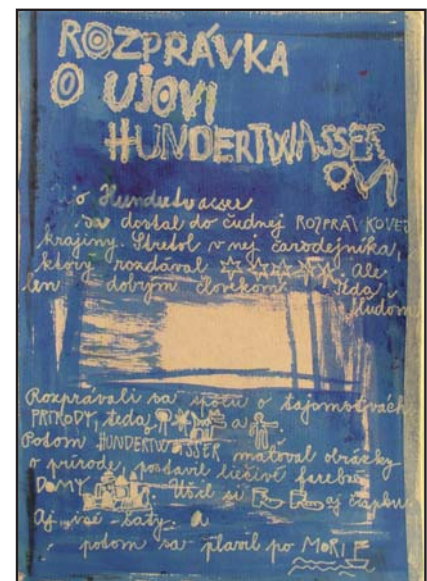 ROZPRÁVKA
O UJOVI
HUNDERTWASSER
OVI
Hundertwasser
sa dostal do čudnej ROZPRÁVKOVEJ
krajiny. Stretol v nej čarodejníka,
ktorý rozdával Ale
len dobrým človekom. Teda
ľuďom
Rozprávali sa spolu o tajomstvách
PRÍRODY, teda a
Potom HUNDERTWASSER maľoval obrázky
o prírode, postavil liečivé farebné
DOMY. Ušil si aj čiapku.
Aj iné šaty. A
potom sa plavil po MORI